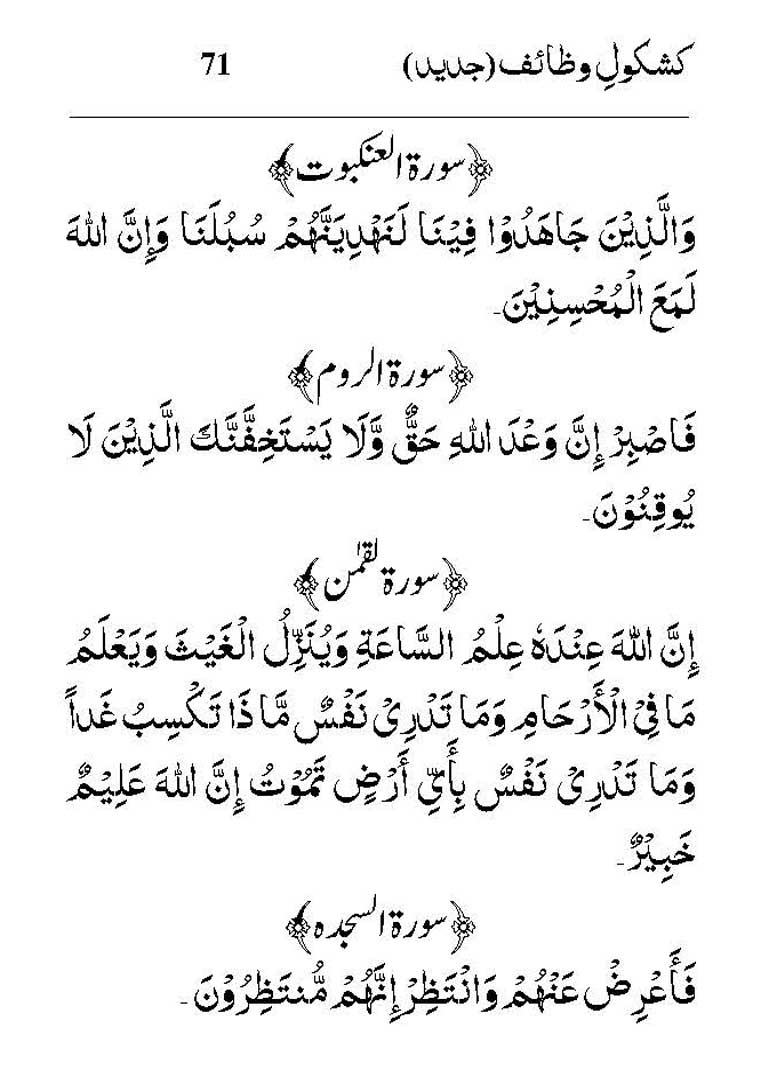 کشکولِ وظائف (جدید) 71
﴿سورۃ العنکبوت﴾
وَالَّذِيْنَ جَاهَدُوْا فِيْنَا لَنَهْدِيَنَّهُمْ سُبُلَنَا وَإِنَّ اللهَ
لَمَعَ الْمُحْسِنِيْنَ۔
﴿سورۃ الروم﴾
فَاصْبِرْ إِنَّ وَعْدَ اللهِ حَقٌّ وَّلَا يَسْتَخِفَّنَّكَ الَّذِيْنَ لَا
يُوقِنُوْنَ۔
﴿سورۃ لقمٰن﴾
إِنَّ اللهَ عِنْدَهٗ عِلْمُ السَّاعَةِ وَيُنَزِّلُ الْغَيْثَ وَيَعْلَمُ
مَا فِيْ الْأَرْحَامِ وَمَا تَدْرِيْ نَفْسٌ مَّا ذَا تَكْسِبُ غَداً
وَمَا تَدْرِيْ نَفْسٌ بِأَيِّ أَرْضٍ تَمُوْتُ إِنَّ اللهَ عَلِيْمٌ
خَبِيْرٌ۔
﴿سورۃ السجدہ﴾
فَأَعْرِضْ عَنْهُمْ وَانْتَظِرْ إِنَّهُمْ مُّنتَظِرُوْنَ۔